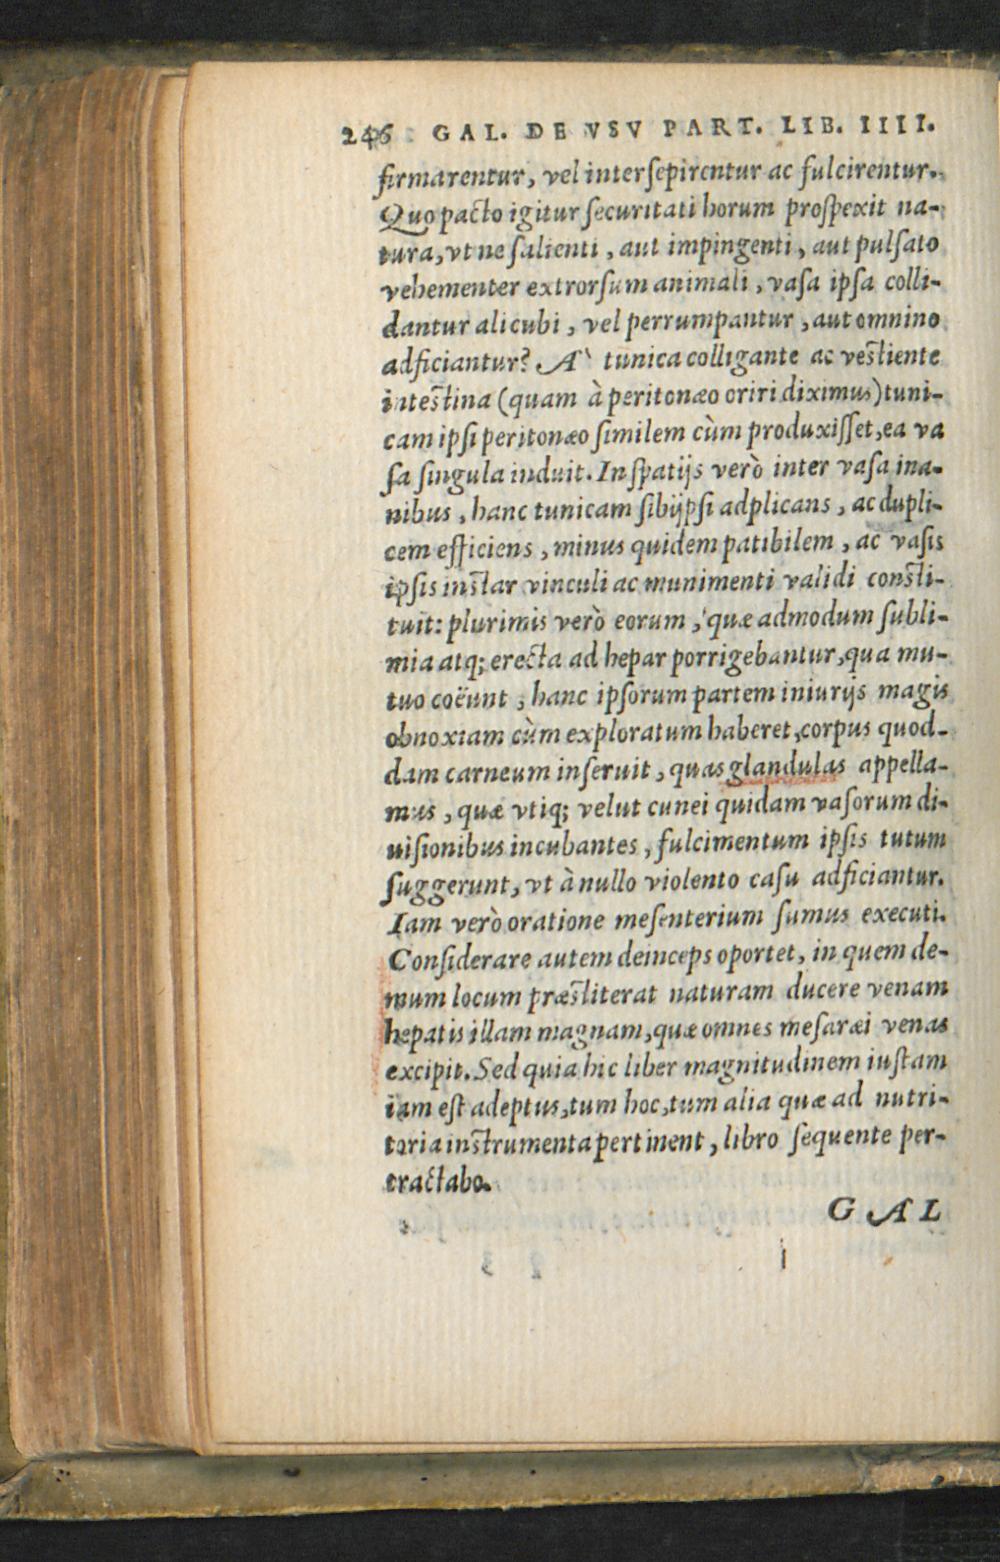 246 GAL. DE VSV PART. LIB. IIII.
firmarentur, vel intersepirentur ac fulcirentur.
Quo pacto igitur securitati horum prospexit na-
tura, vt ne salienti, aut impingenti, aut pulsato
vehementer extrorsum animali, vasa ipsa colli-
dantur alicubi, vel perrumpantur, aut omnino
adficiantur? A` tunica colligante ac vestiente
intestina (quam à peritonæo oriri diximus) tuni-
cam ipsi peritonæo similem cùm produxisset, ea va
sa singula induit. In spatijs verò inter vasa ina-
nibus, hanc tunicam sibijpsi adplicans, ac dupli-
cem efficiens, minus quidem patibilem, ac vasis
ipsis instar vinculi ac munimenti validi consti-
tuit: plurimis verò eorum, quæ admodum subli-
mia atq; erecta ad hepar porrigebantur, qua mu-
tuo coëunt, hanc ipsorum partem iniurijs magis
obnoxiam cùm exploratum haberet, corpus quod-
dam carneum inseruit, quas glandulas appella-
mus, quæ vtiq; velut cunei quidam vasorum di-
uisionibus incubantes, fulcimentum ipsis tutum
suggerunt, vt à nullo violento casu adficiantur.
Iam verò oratione mesenterium sumus executi.
Considerare autem deinceps oportet, in quem de-
mum locum præstiterat naturam ducere venam
hepatis illam magnam, quæ omnes mesaræi venas
excipit. Sed quia hic liber magnitudinem iustam
iam est adeptus, tum hoc, tum alia quæ ad nutri-
toria instrumenta pertinent, libro sequente per-
tractabo.
GAL